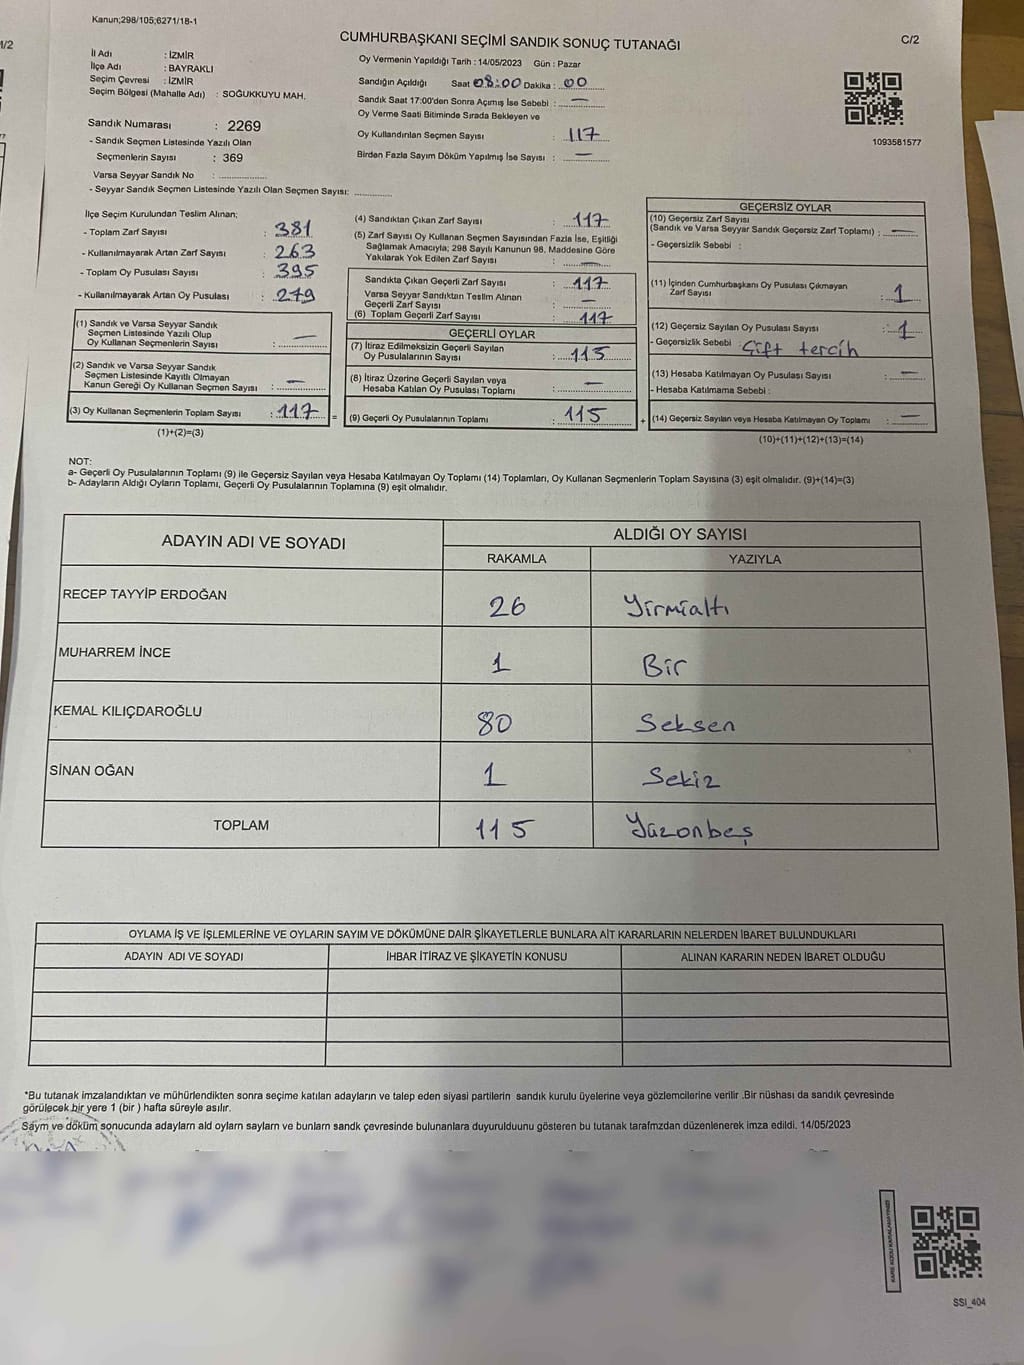 Kanun;298/105;6271/18-1
CUMHURBAŞKANI SEÇİMİ SANDIK SONUÇ TUTANAĞI
C/2
İl Adı : İZMİR
İlçe Adı : BAYRAKLI
Seçim Çevresi : İZMİR
Seçim Bölgesi (Mahalle Adı) : SOĞUKKUYU MAH.
Sandık Numarası : 2269
- Sandık Seçmen Listesinde Yazılı Olan
Seçmenlerin Sayısı : 369
Varsa Seyyar Sandık No :
- Seyyar Sandık Seçmen Listesinde Yazılı Olan Seçmen Sayısı:
Oy Vermenin Yapıldığı Tarih : 14/05/2023 Gün : Pazar
Sandığın Açıldığı Saat 08:00 Dakika : 00
Sandık Saat 17:00'den Sonra Açımış İse Sebebi : —
Oy Verme Saati Bitiminde Sırada Bekleyen ve
Oy Kullandırılan Seçmen Sayısı : 117
Birden Fazla Sayım Döküm Yapılmış İse Sayısı : —
1093581577
İlçe Seçim Kurulundan Teslim Alınan;
- Toplam Zarf Sayısı : 381
- Kullanılmayarak Artan Zarf Sayısı : 263
- Toplam Oy Pusulası Sayısı : 395
- Kullanılmayarak Artan Oy Pusulası : 279
(1) Sandık ve Varsa Seyyar Sandık
Seçmen Listesinde Yazılı Olup
Oy Kullanan Seçmenlerin Sayısı : —
(2) Sandık ve Varsa Seyyar Sandık
Seçmen Listesinde Kayıtlı Olmayan
Kanun Gereği Oy Kullanan Seçmen Sayısı : —
(3) Oy Kullanan Seçmenlerin Toplam Sayısı : 117
(1)+(2)=(3)
=
(4) Sandıktan Çıkan Zarf Sayısı : 117
(5) Zarf Sayısı Oy Kullanan Seçmen Sayısından Fazla İse, Eşitliği
Sağlamak Amacıyla; 298 Sayılı Kanunun 98. Maddesine Göre
Yakılarak Yok Edilen Zarf Sayısı : —
Sandıkta Çıkan Geçerli Zarf Sayısı : 117
Varsa Seyyar Sandıktan Teslim Alınan
Geçerli Zarf Sayısı : —
(6) Toplam Geçerli Zarf Sayısı : 117
GEÇERLİ OYLAR
(7) İtiraz Edilmeksizin Geçerli Sayılan
Oy Pusulalarının Sayısı : 115
(8) İtiraz Üzerine Geçerli Sayılan veya
Hesaba Katılan Oy Pusulası Toplamı : —
(9) Geçerli Oy Pusulalarının Toplamı : 115
+
GEÇERSİZ OYLAR
(10) Geçersiz Zarf Sayısı
(Sandık ve Varsa Seyyar Sandık Geçersiz Zarf Toplamı) : —
- Geçersizlik Sebebi :
(11) İçinden Cumhurbaşkanı Oy Pusulası Çıkmayan
Zarf Sayısı : 1
(12) Geçersiz Sayılan Oy Pusulası Sayısı : 1
- Geçersizlik Sebebi : Çift tercih
(13) Hesaba Katılmayan Oy Pusulası Sayısı : —
- Hesaba Katılmama Sebebi :
(14) Geçersiz Sayılan veya Hesaba Katılmayan Oy Toplamı : —
(10)+(11)+(12)+(13)=(14)
NOT:
a- Geçerli Oy Pusulalarının Toplamı (9) ile Geçersiz Sayılan veya Hesaba Katılmayan Oy Toplamı (14) Toplamları, Oy Kullanan Seçmenlerin Toplam Sayısına (3) eşit olmalıdır. (9)+(14)=(3)
b- Adayların Aldığı Oyların Toplamı, Geçerli Oy Pusulalarının Toplamına (9) eşit olmalıdır.
ADAYIN ADI VE SOYADI ALDIĞI OY SAYISI
RAKAMLA YAZIYLA
RECEP TAYYİP ERDOĞAN 26 Yirmialtı
MUHARREM İNCE 1 Bir
KEMAL KILIÇDAROĞLU 80 Seksen
SİNAN OĞAN 1 Sekiz
TOPLAM 115 Yüzonbeş
OYLAMA İŞ VE İŞLEMLERİNE VE OYLARIN SAYIM VE DÖKÜMÜNE DAİR ŞİKAYETLERLE BUNLARA AİT KARARLARIN NELERDEN İBARET BULUNDUKLARI
ADAYIN ADI VE SOYADI İHBAR İTİRAZ VE ŞİKAYETİN KONUSU ALINAN KARARIN NEDEN İBARET OLDUĞU
*Bu tutanak imzalandıktan ve mühürlendikten sonra seçime katılan adayların ve talep eden siyasi partilerin sandık kurulu üyelerine veya gözlemcilerine verilir .Bir nüshası da sandık çevresinde
görülecek bir yere 1 (bir ) hafta süreyle asılır.
Saym ve döküm sonucunda adaylarn ald oylarn saylarn ve bunlarn sandk çevresinde bulunanlara duyurulduunu gösteren bu tutanak tarafmzdan düzenlenerek imza edildi. 14/05/2023
SSI_404